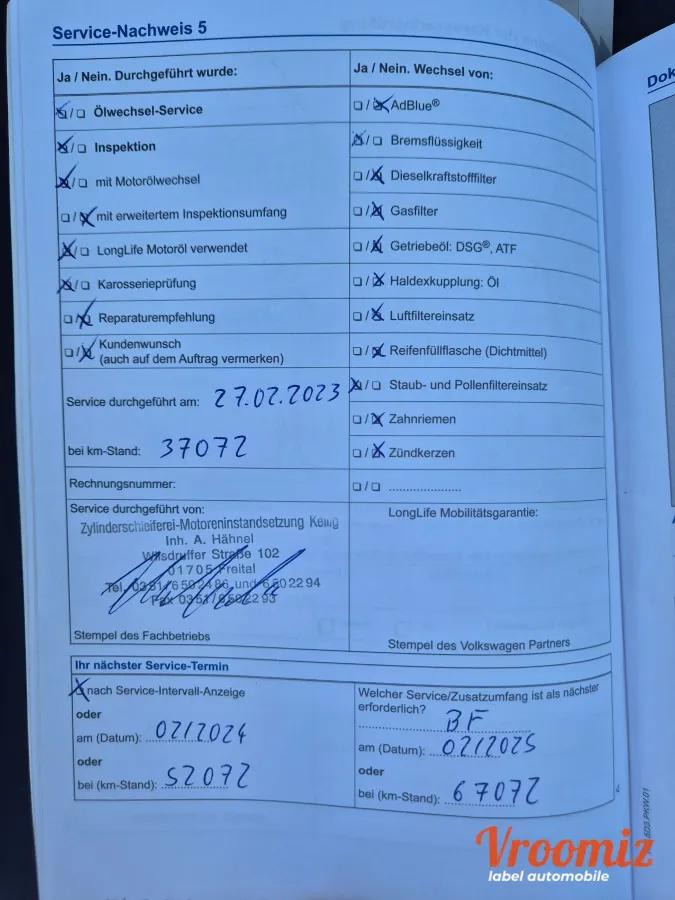 Service-Nachweis 5
Ja / Nein. Durchgeführt wurde:
☒/☐ Ölwechsel-Service
☒/☐ Inspektion
☒/☐ mit Motorölwechsel
☐/☒ mit erweitertem Inspektionsumfang
☒/☐ LongLife Motoröl verwendet
☒/☐ Karosserieprüfung
☐/☒ Reparaturempfehlung
☐/☒ Kundenwunsch
(auch auf dem Auftrag vermerken)
Service durchgeführt am: 27.02.2023
bei km-Stand: 37072
Rechnungsnummer:
Service durchgeführt von:
Zylinderschleiferei-Motoreninstandsetzung
Inh. A. Hähnel
Wilsdruffer Straße 102
01705 Freital
Tel. 0351/6502486 und 6502294
Fax 0351/6502293
Stempel des Fachbetriebs
Ja / Nein. Wechsel von:
☐/☒ AdBlue®
☒/☐ Bremsflüssigkeit
☐/☒ Dieselkraftstofffilter
☐/☒ Gasfilter
☐/☒ Getriebeöl: DSG®, ATF
☐/☒ Haldexkupplung: Öl
☐/☒ Luftfiltereinsatz
☐/☒ Reifenfüllflasche (Dichtmittel)
☒/☐ Staub- und Pollenfiltereinsatz
☐/☒ Zahnriemen
☐/☒ Zündkerzen
☐/☐ .....................
LongLife Mobilitätsgarantie:
Stempel des Volkswagen Partners
Ihr nächster Service-Termin
☒ nach Service-Intervall-Anzeige
oder
am (Datum): 02/2024
oder
bei (km-Stand): 52072
Welcher Service/Zusatzumfang ist als nächster
erforderlich?
BF
am (Datum): 02/2025
oder
bei (km-Stand): 67072
Dok
Vroomiz
label automobile